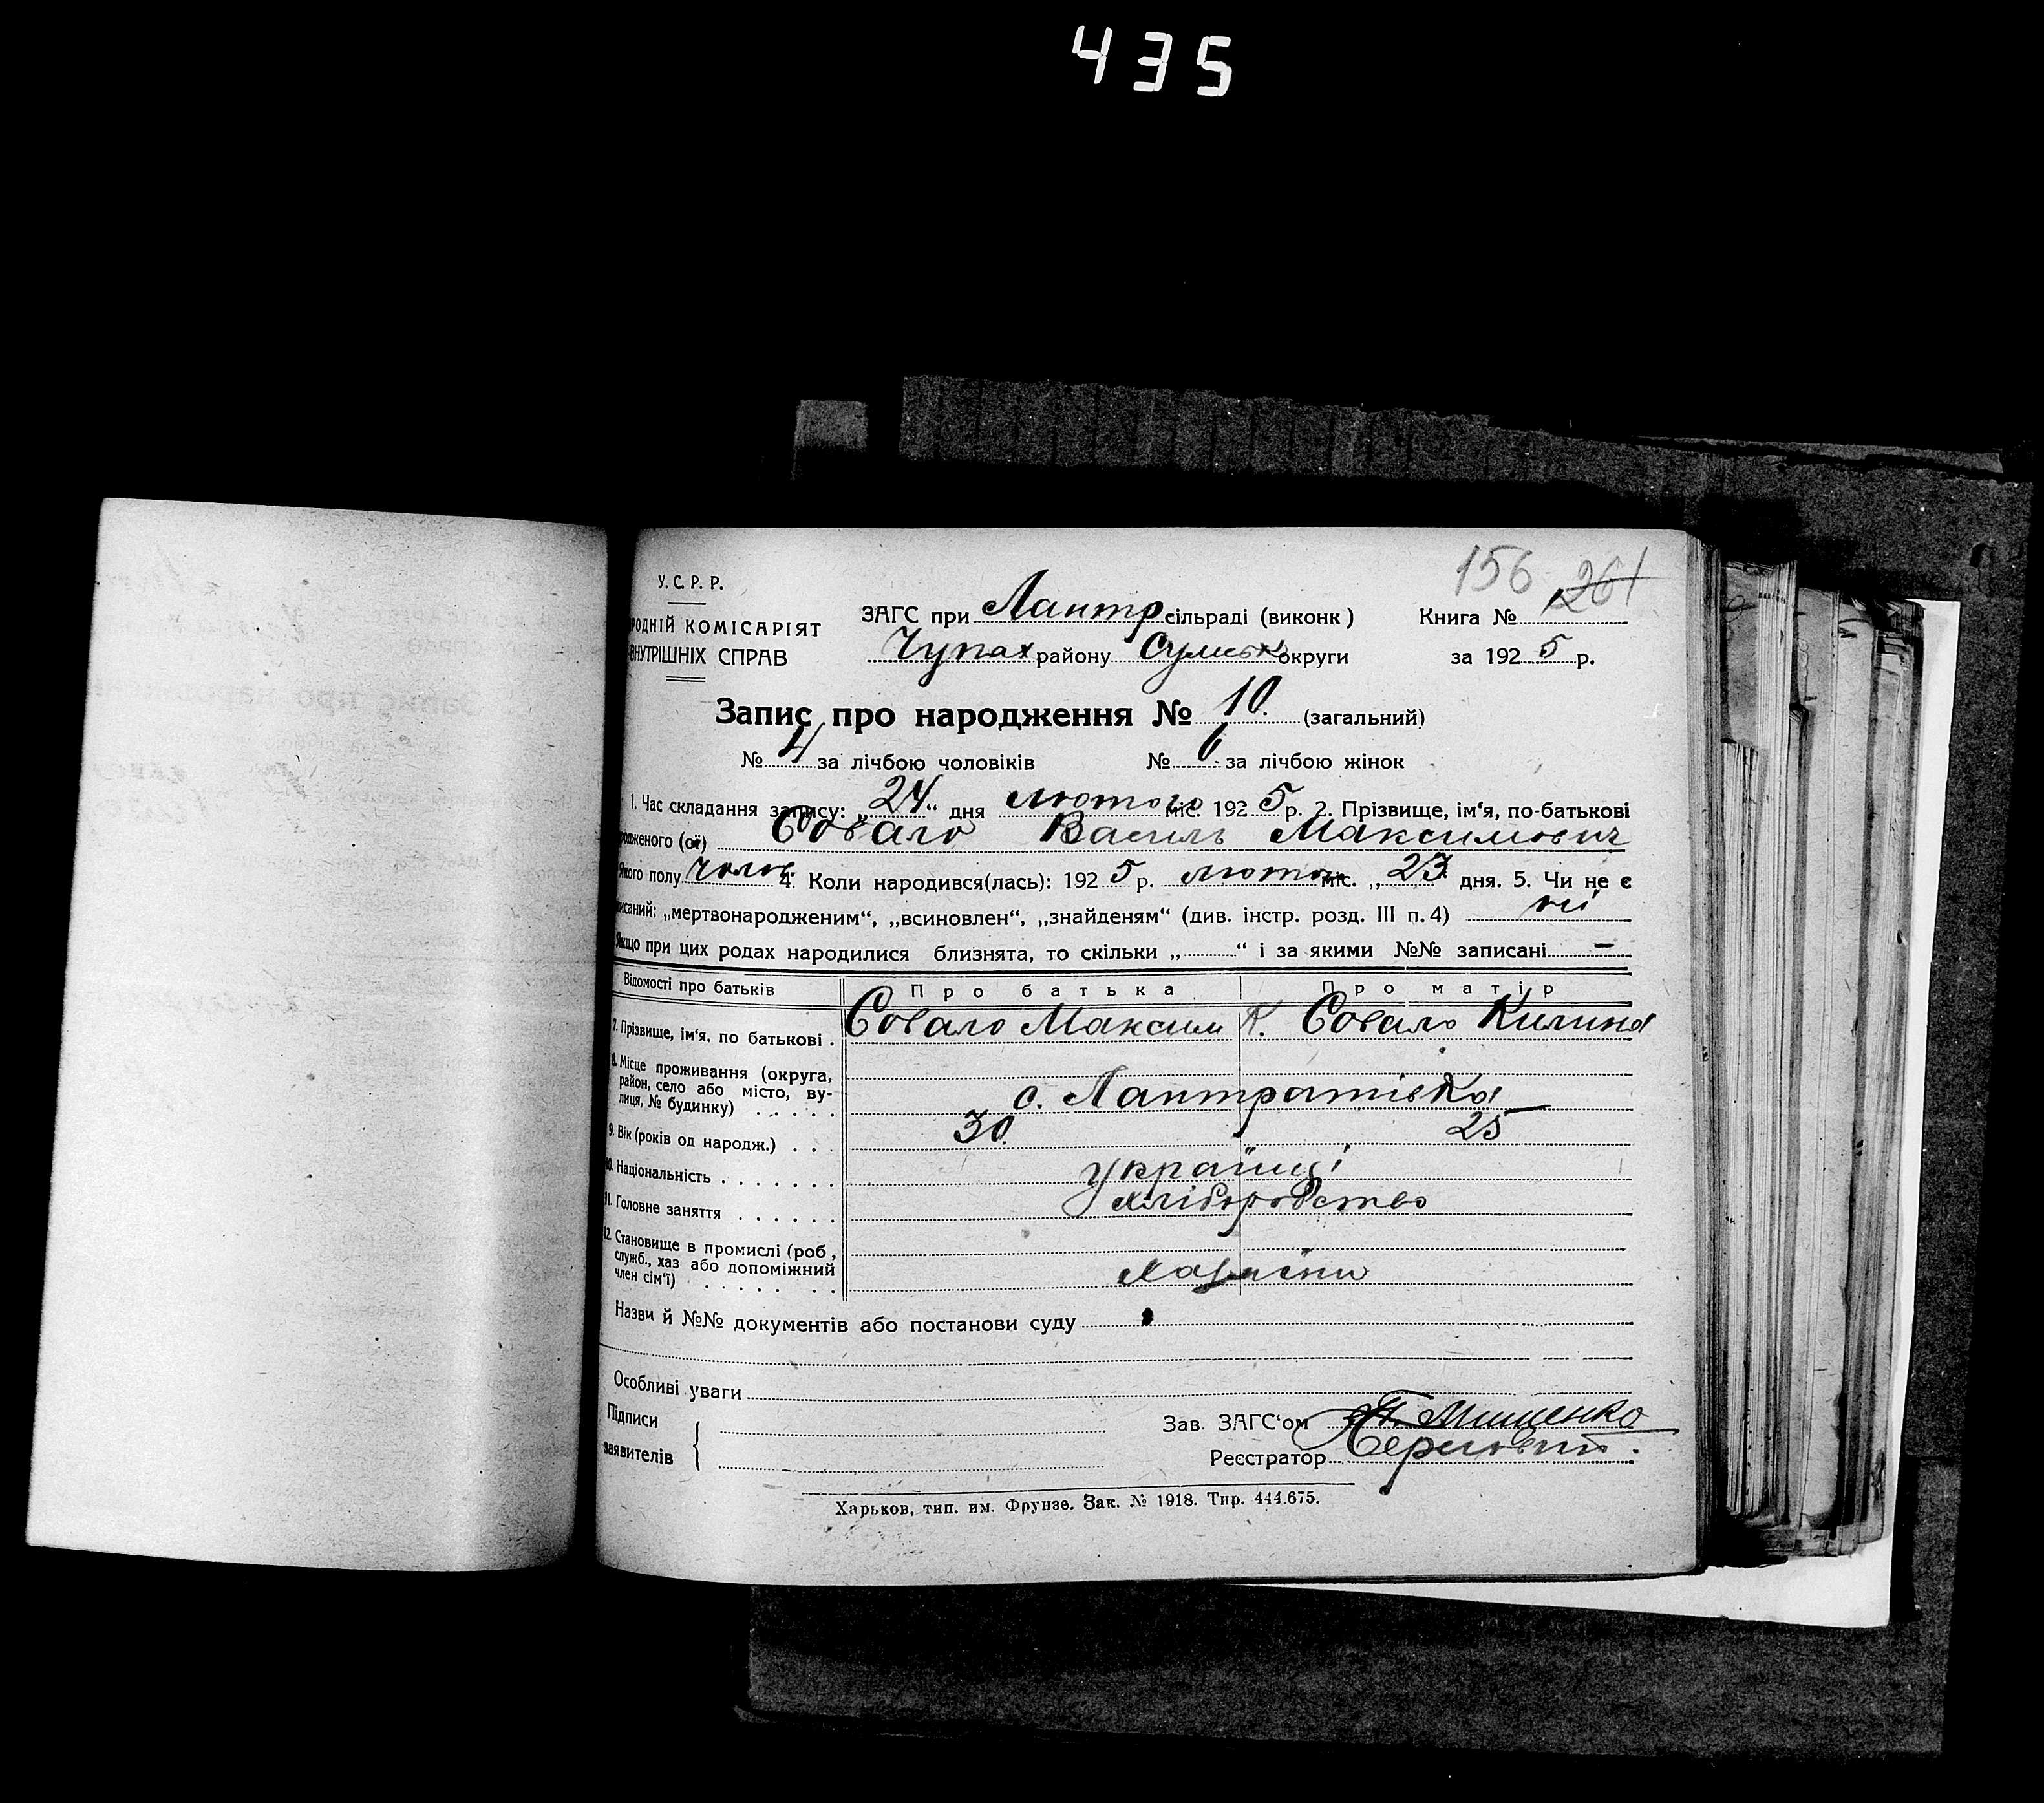 435
156 261
У. С. Р. Р.
РОДНІЙ КОМІСАРІЯТ
ВНУТРІШНІХ СПРАВ
ЗАГС при Лантр сільраді (виконк)
Книга № 1
Чупах району Сумськ округи
за 1925 р.
Запис про народження № 10. (загальний)
№ 4 за лічбою чоловіків № 6 за лічбою жінок
1. Час складання запису: „24“ дня лютого міс. 1925 р. 2. Прізвище, ім'я, по-батькові
родженого (ої) Совало Василь Максимович
Якого полу чолов. 4. Коли народився(лась): 1925 р. лютого міс. „23 дня. 5. Чи не є
писаний: „мертвонародженим“, „всиновлен“, „знайденям“ (див. інстр. розд. III п. 4) ні
Якщо при цих родах народилися близнята, то скільки „ “ і за якими №№ записані —
Відомості про батьків Про батька Про матір
7. Прізвище, ім'я. по батькові . Совало Максим К. Совало Килина
8. Місце проживання (округа,
район, село або місто, ву-
лиця, № будинку) . . . . . с. Лантратівка
9. Вік (років од народж.) . . . 30. 25
10. Національність . . . . . . . україці
11. Головне заняття . . . . . . хліборобство
12. Становище в промислі (роб.,
служб., хаз або допоміжний
член сім'ї) . . . . . . .
Назви й №№ документів або постанови суду
Особливі уваги
Підписи
заявителів
Зав. ЗАГС'ом Мищенко
Реєстратор
Харьков, тип. им. Фрунзе. Зак. № 1918. Тир. 444.675.